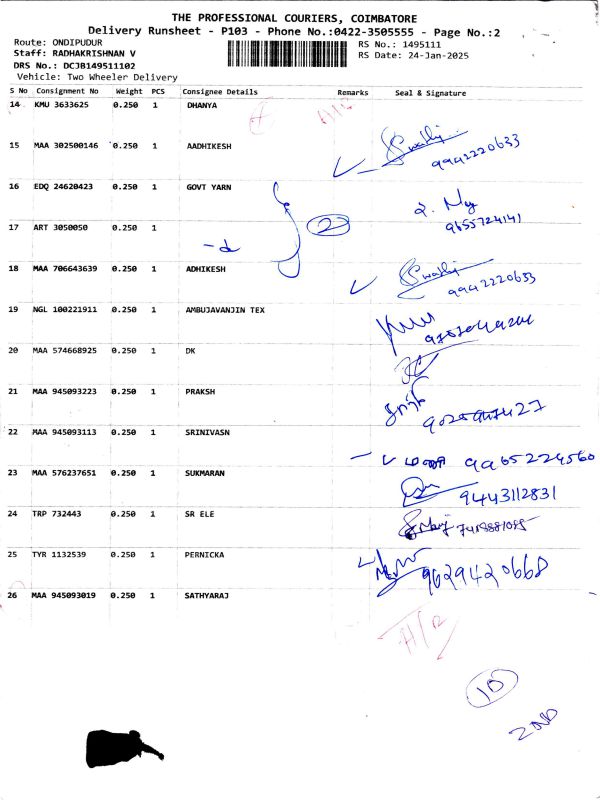 THE PROFESSIONAL COURIERS, COIMBATORE
Delivery Runsheet - P103 - Phone No.:0422-3505555 - Page No.:2
Route: ONDIPUDUR
RS No.: 1495111
Staff: RADHAKRISHNAN V
RS Date: 24-Jan-2025
DRS No.: DCJB149511102
Vehicle: Two Wheeler Delivery
S No Consignment No Weight PCS Consignee Details Remarks Seal & Signature
14 KMU 3633625 0.250 1 DHANYA
15 MAA 302500146 0.250 1 AADHIKESH
9942220633
16 EDQ 24620423 0.250 1 GOVT YARN
9655724141
17 ART 3050050 0.250 1
2
18 MAA 706643639 0.250 1 ADHIKESH
9942220633
19 NGL 100221911 0.250 1 AMBUJAVANJIN TEX
20 MAA 574668925 0.250 1 DK
21 MAA 945093223 0.250 1 PRAKSH
22 MAA 945093113 0.250 1 SRINIVASN
9965224560
23 MAA 576237651 0.250 1 SUKMARAN
9443112831
24 TRP 732443 0.250 1 SR ELE
25 TYR 1132539 0.250 1 PERNICKA
9629420668
26 MAA 945093019 0.250 1 SATHYARAJ
10